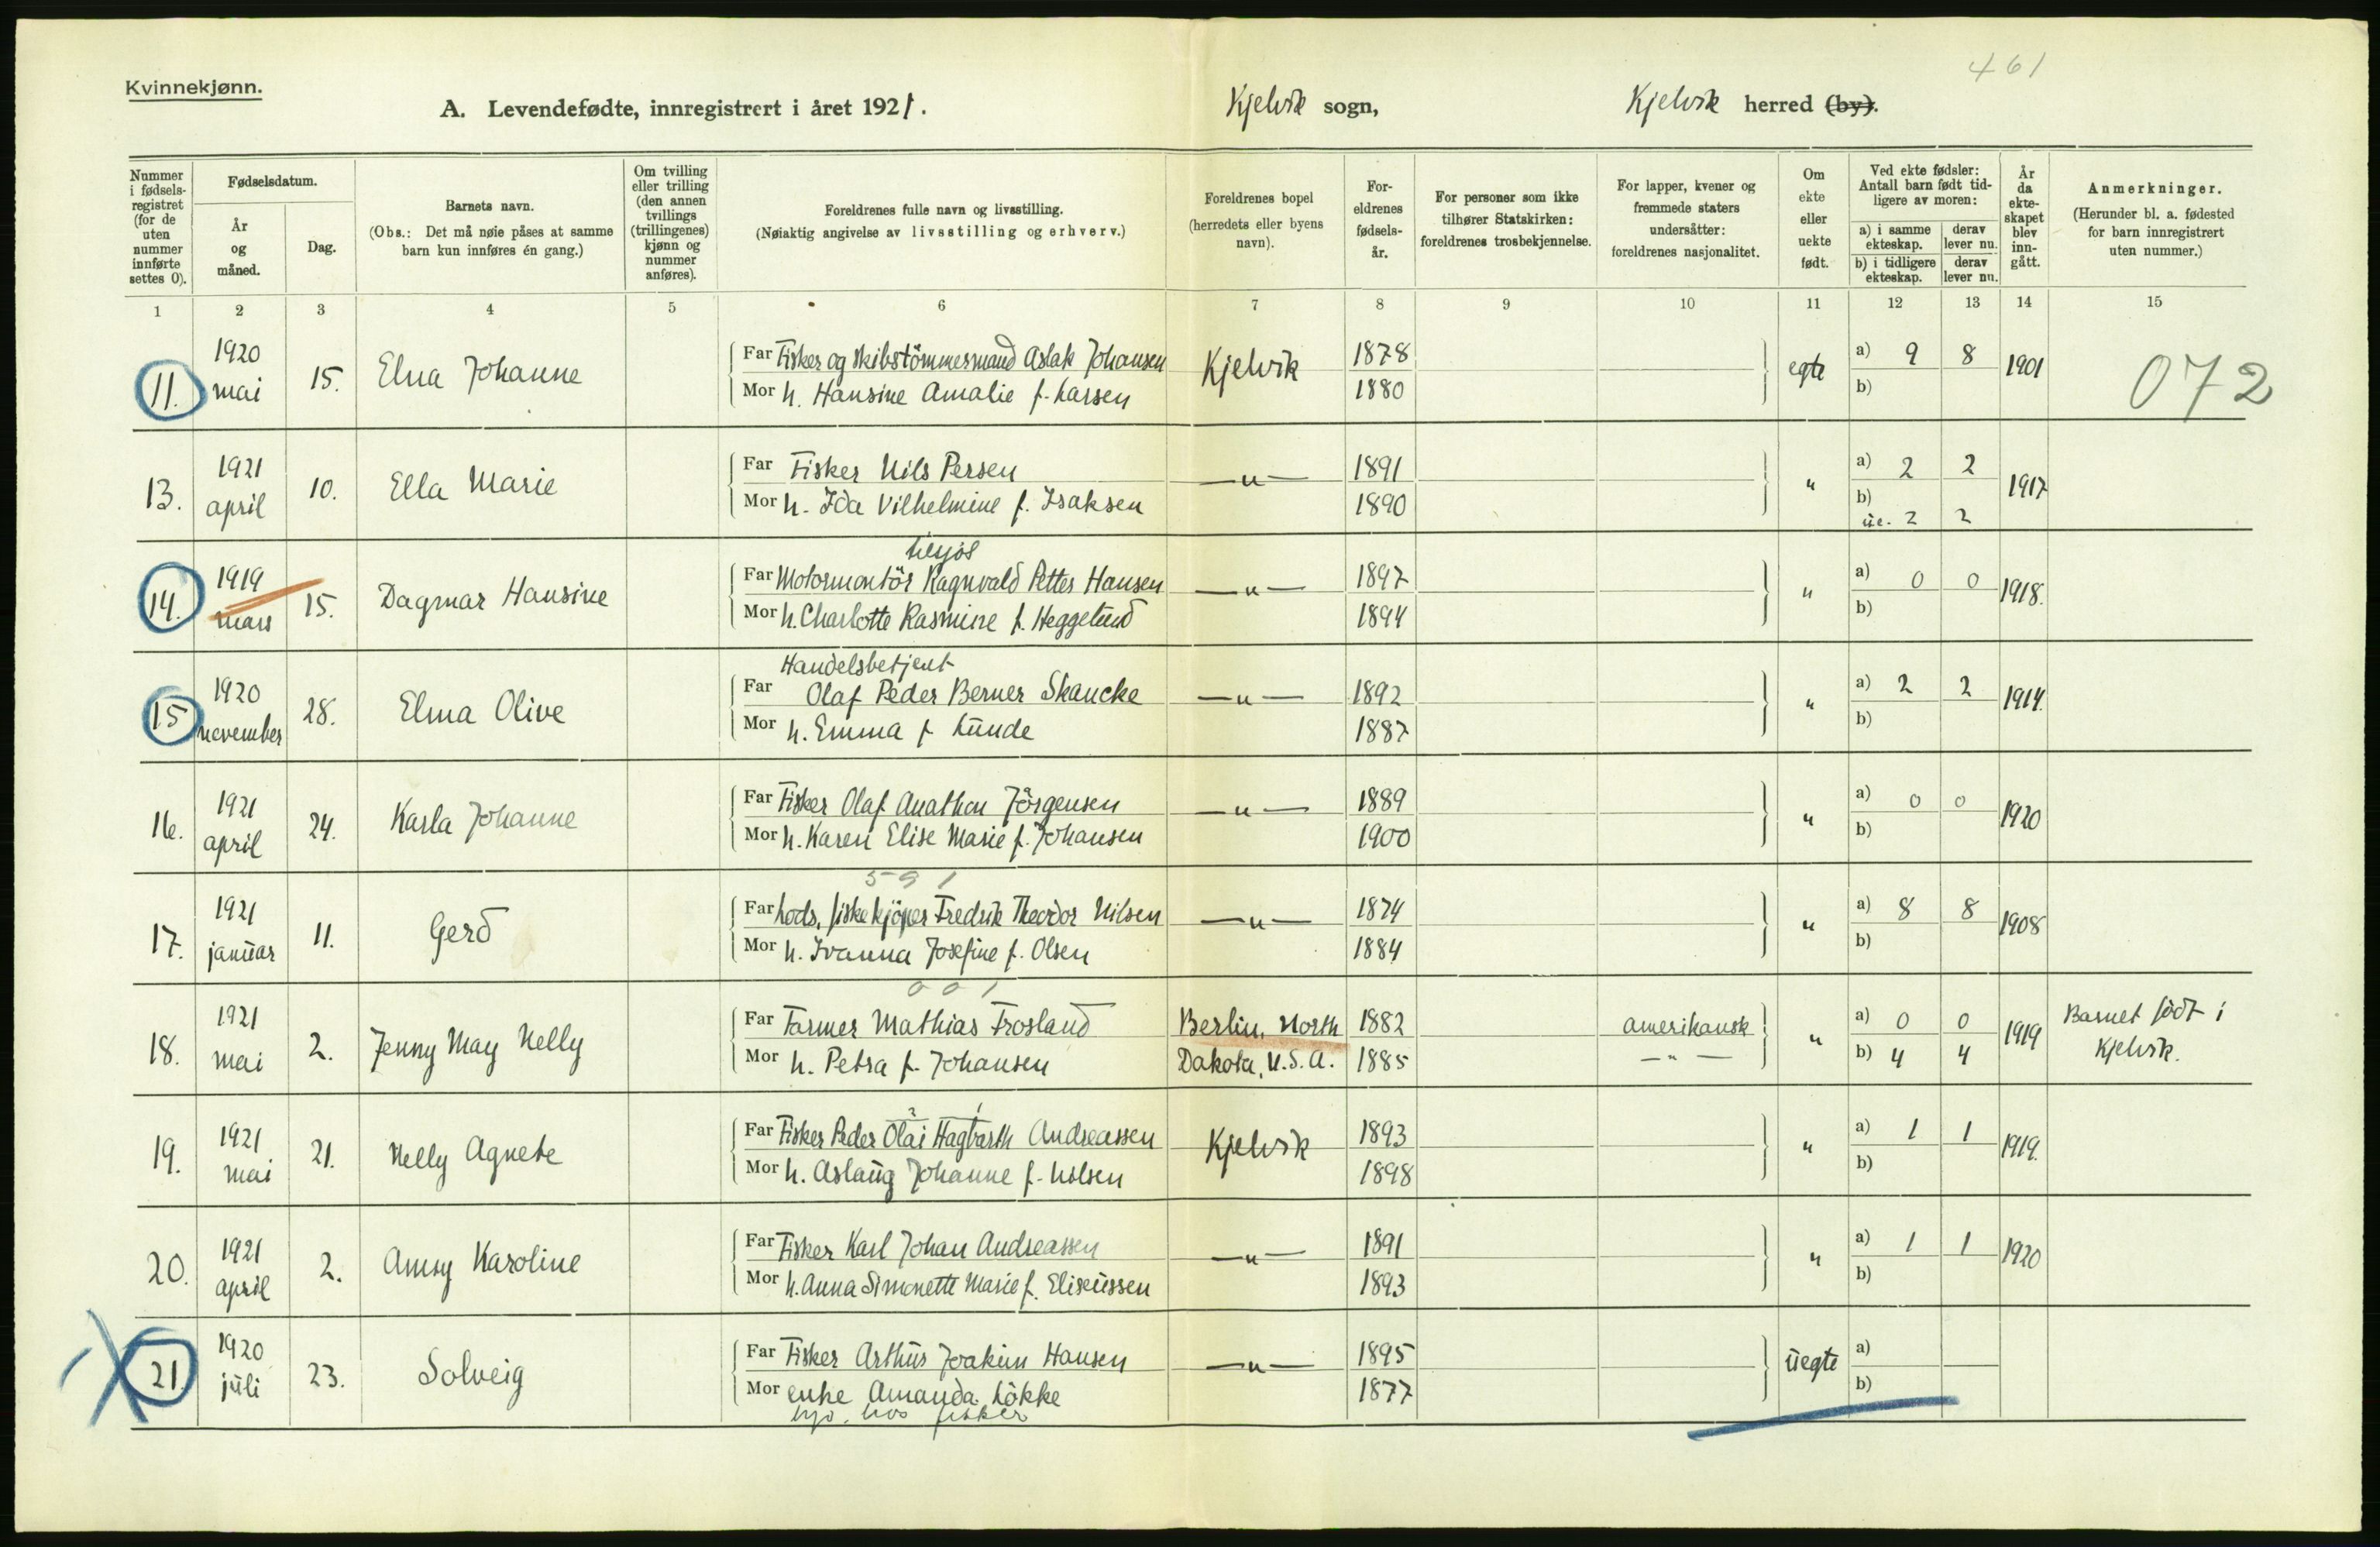 461
Kvinnekjønn.
A. Levendefødte, innregistrert i året 1921. Kjelvik sogn, Kjelvik herred (by).
Nummer i fødsels-registret (for de uten nummer innførte settes 0).
Fødselsdatum.
År og måned.
Dag.
Barnets navn.
(Obs.: Det må nøie påses at samme barn kun innføres én gang.)
Om tvilling eller trilling (den annen tvillings (trillingenes) kjønn og nummer anføres).
Foreldrenes fulle navn og livsstilling.
(Nøiaktig angivelse av livsstilling og erhverv.)
Foreldrenes bopel (herredets eller byens navn).
For-eldrenes fødsels-år.
For personer som ikke tilhører Statskirken: foreldrenes trosbekjennelse.
For lapper, kvener og fremmede staters undersåtter: foreldrenes nasjonalitet.
Om ekte eller uekte født.
Ved ekte fødsler: Antall barn født tid-ligere av moren:
a) i samme ekteskap. derav lever nu.
b) i tidligere ekteskap. derav lever nu.
År da ekte-skapet blev inn-gått.
Anmerkninger.
(Herunder bl. a. fødested for barn innregistrert uten nummer.)
1 2 3 4 5 6 7 8 9 10 11 12 13 14 15
11. 1920 mai 15. Elna Johanne Far Fisker og skibstömmermand Aslak Johansen Kjelvik 1878 egte a) 9 8 1901 072
Mor h. Hansine Amalie f. Larsen 1880 b)
13. 1921 april 10. Ella Marie Far Fisker Nils Persen —"— 1891 " a) 2 2 1917
Mor h. Ida Vilhelmine f. Isaksen 1890 b)
ue. 2 2
14. 1919 mars 15. Dagmar Hansine Far Motormontör Ragnvald Petter Hansen —"— 1897 " a) 0 0 1918.
Mor h. Charlotte Rasmine f. Heggelund 1894 b)
Handelsbetjent
15 1920 november 28. Elma Olive Far Olaf Peder Berner Skancke —"— 1892 " a) 2 2 1914.
Mor h. Emma f. Lunde 1887 b)
16. 1921 april 24. Karla Johanne Far Fisker Olaf Anathon Jörgensen —"— 1889 " a) 0 0 1920
Mor h. Karen Elise Marie f. Johansen 1900 b)
591
17. 1921 januar 11. Gerd Far Lods, fiskekjöper Fredrik Theodor Nilsen —"— 1874 " a) 8 8 1908
Mor h. Ivanna Josefine f. Olsen 1884 b)
001
18. 1921 mai 2. Jenny May Nelly Far Farmer Mathias Frosland Berlin, North 1882 amerikansk " a) 0 0 1919 Barnet född i
Mor h. Petra f. Johansen Dakota, U.S.A. 1885 —"— b) 4 4 Kjelvik.
19. 1921 mai 21. Nelly Agnete Far Fisker Peder Olai Hagbarth Andreassen Kjelvik 1893 " a) 1 1 1919.
Mor h. Aslaug Johanne f. Nilsen 1898 b)
20. 1921 april 2. Amsy Karoline Far Fisker Karl Johan Andreassen —"— 1891 " a) 1 1 1920
Mor h. Anna Simonette Marie f. Eliseussen 1893 b)
21. 1920 juli 23. Solveig Far Fisker Arthur Joakim Hansen —"— 1895 uegte a)
Mor enke Amanda Lökke 1877 b)
hos fisker